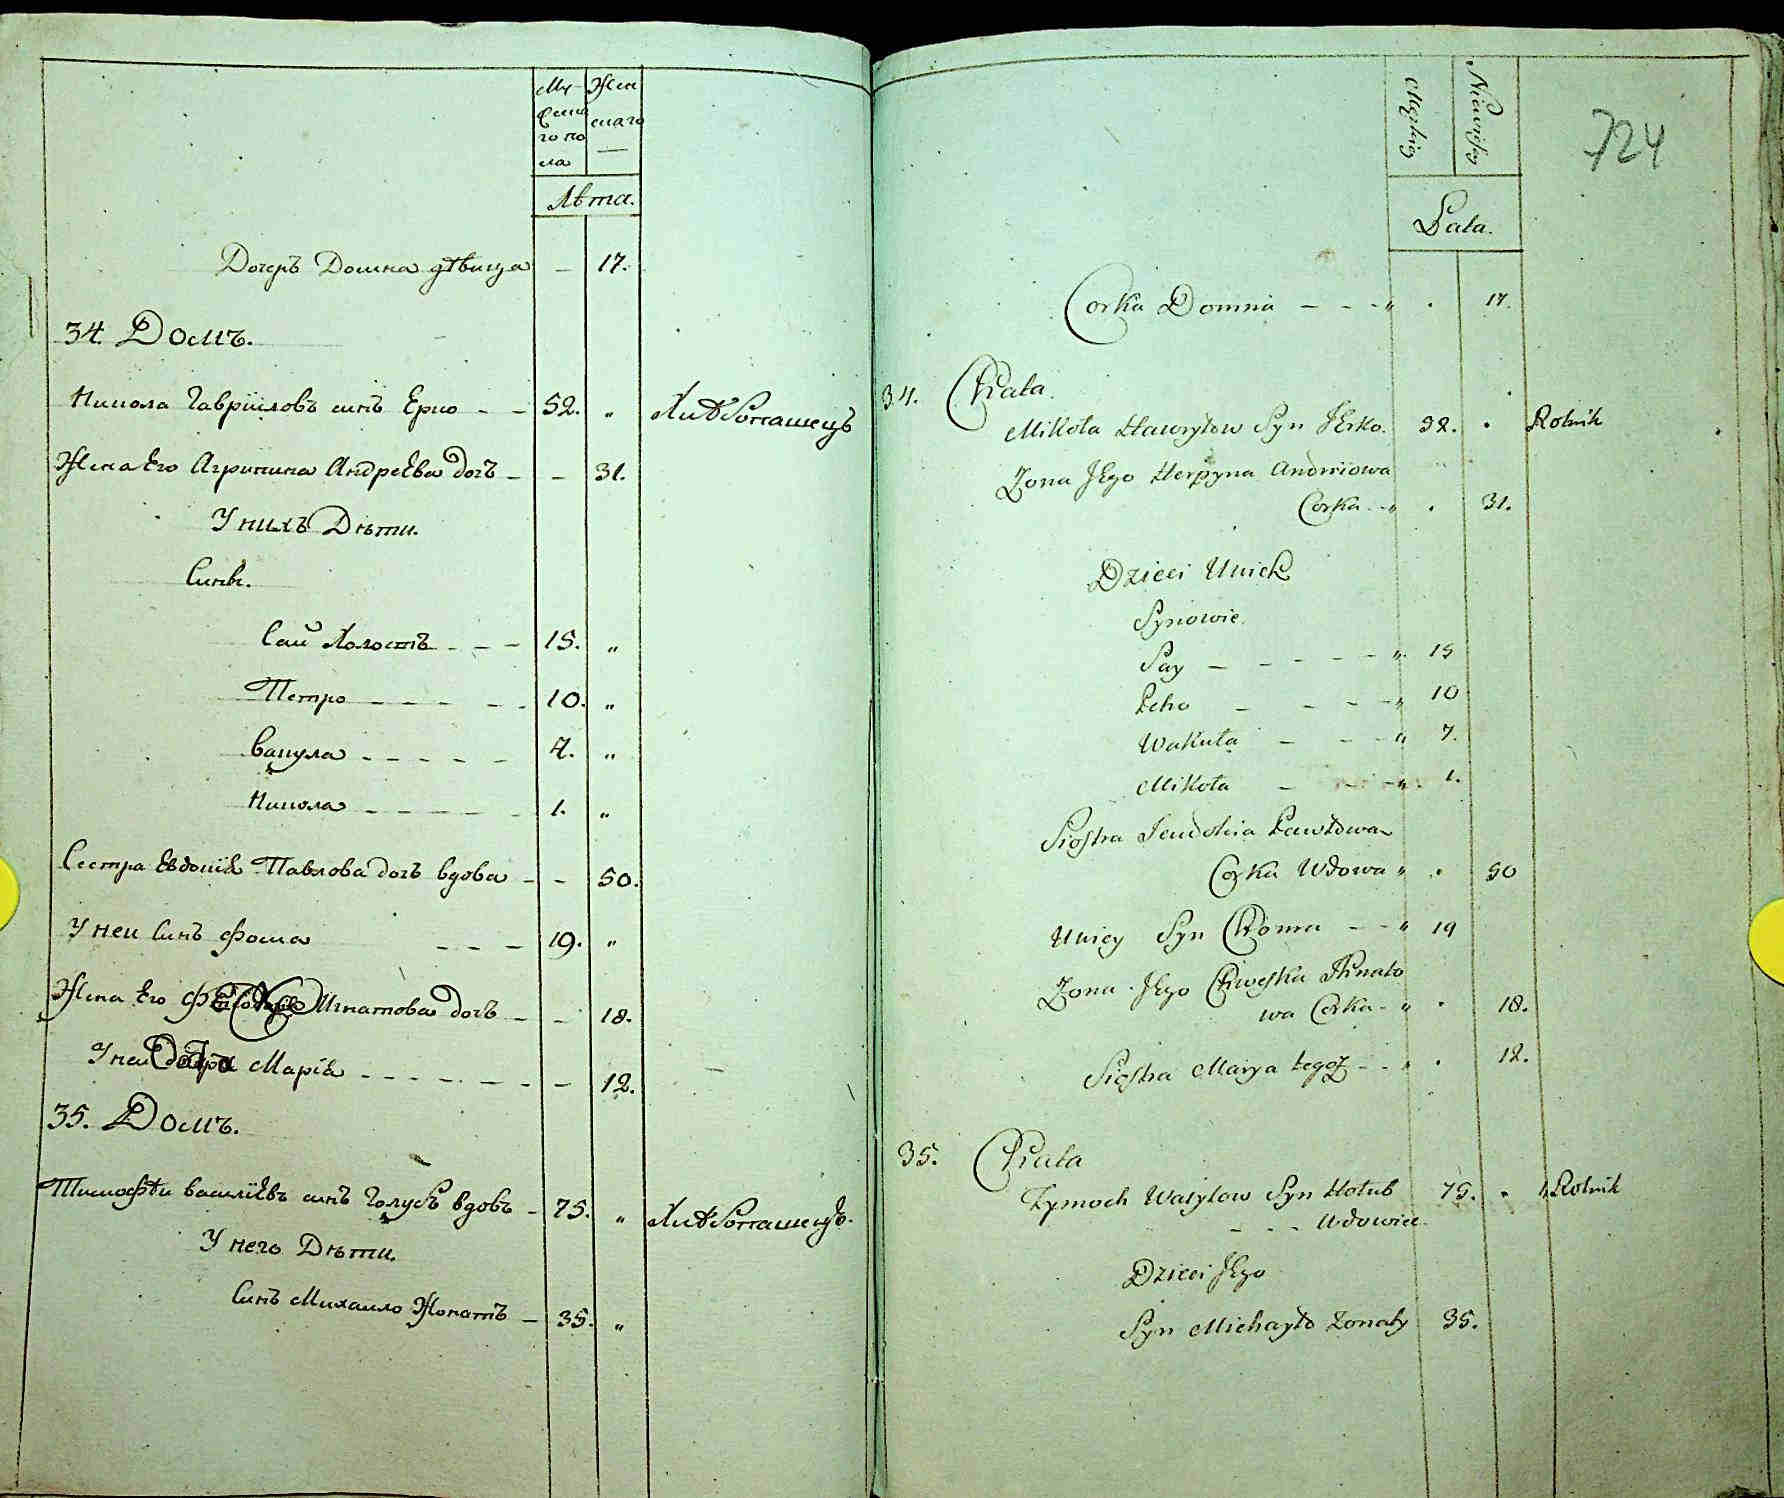 Му-
жеска
го по
ла
Жен
скаго
Лѣта.
Дочеръ Домна дѣвица — 17.
34. Домъ.
Никола Гавріиловъ синъ Ерко — — 52. „ Хлѣбопашецъ
Жена Его Агрипина Андреева дочъ — — 31.
У нихъ Дѣти.
Сини.
Сай Холостъ — — — 15. „
Петро — — — — — 10. „
Вакула — — — — — 7. „
Никола — — — — 1. „
Сестра Евдокія Павлова дочъ вдова — — 50.
У неи Синъ Фома — — — 19. „
Жена Его Игнатова дочъ — — 18.
У неи Марія — — — — — — — 12.
35. Домъ.
Тимофѣи Василіевъ синъ Голубъ вдовъ — 75. „ Хлѣбопашецъ.
У него Дѣти
Синъ Михаило Жонатъ — 35. „
Męzkiey
Niewieściey
724
Lata.
Corka Domna — — — „ . 17.
34. Chata.
Mikoła Hawryłow Syn JErko. 52. . Rolnik
Zona JEgo Herpyna Andrriowa
Corka — „ . 31.
Dzieci Unich
Synowie.
Say — — — — — „ 15
Petro — — — — „ 10
Wakuła — — — „ 7.
Mikoła — — — „ 1.
Siostra Jewdokia Pawłowa
Corka Wdowa „ . 50
Uniey Syn Choma — — „ 19
Zona JEgo Chweśka Ihnato
wa Corka — „ . 18.
Siostra Marya tegoż — — „ . 12.
35. Chata
Tymoch Wasylow Syn Hołub 75. . „ Rolnik
— — — Wdowiec
Dzieci JEgo
Syn Michayło Zonaty 35.